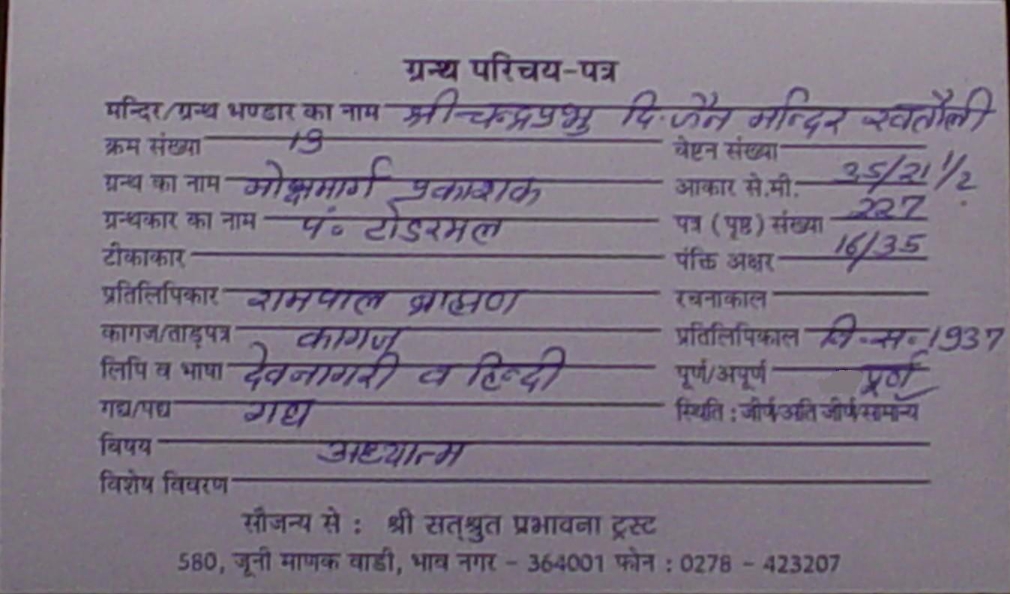 ग्रन्थ परिचय-पत्र
मन्दिर/ग्रन्थ भण्डार का नाम श्री चन्द्रप्रभु दि. जैन मन्दिर खतौली
क्रम संख्या 19 वेष्टन संख्या
ग्रन्थ का नाम मोक्षमार्ग प्रकाशक आकार से.मी. 35/21 1/2
ग्रन्थकार का नाम पं० टोडरमल पत्र (पृष्ठ) संख्या 227
टीकाकार पंक्ति अक्षर 16/35
प्रतिलिपिकार रामपाल ब्राह्मण रचनाकाल
कागज/ताड़पत्र कागज प्रतिलिपिकाल वि.स. 1937
लिपि व भाषा देवनागरी व हिन्दी पूर्ण/अपूर्ण पूर्ण
गद्य/पद्य गद्य स्थिति : जीर्ण/अति जीर्ण/सामान्य
विषय अध्यात्म
विशेष विवरण
सौजन्य से : श्री सत्श्रुत प्रभावना ट्रस्ट
580, जूनी माणक वाडी, भाव नगर - 364001 फोन : 0278 - 423207